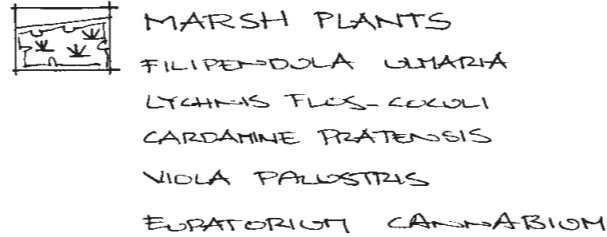 MARSH PLANTS
FILIPENDULA ULMARIA
LYCHNIS FLOS-CUCULI
CARDAMINE PRATENSIS
VIOLA PALUSTRIS
EUPATORIUM CANNABIUM